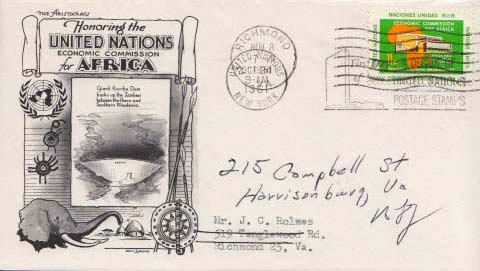 THE ARISTOCRATS
Honoring the
UNITED NATIONS
ECONOMIC COMMISSION
for AFRICA
Giant Kariba Dam
backs up the Zambesi
between Northern and
Southern Rhodesia.
RICHMOND
NOV 8
UNITED NATIONS
OCT 24
9 AM
NEW YORK
NACIONES UNIDAS
ECONOMIC COMMISSION
FOR AFRICA
UNITED NATIONS
POSTAGE STAMPS
215 Campbell St
Harrisonburg, Va
Mr. J. C. Holmes
519 Tanglewood Rd.
Richmond 25, Va.